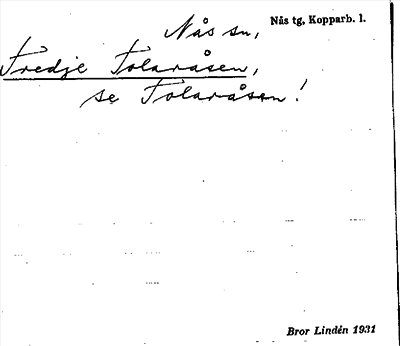 Nås sn, Nås tg, Kopparb. l.
Tredje Tolaråsen,
se Tolaråsen!
Bror Lindén 1931